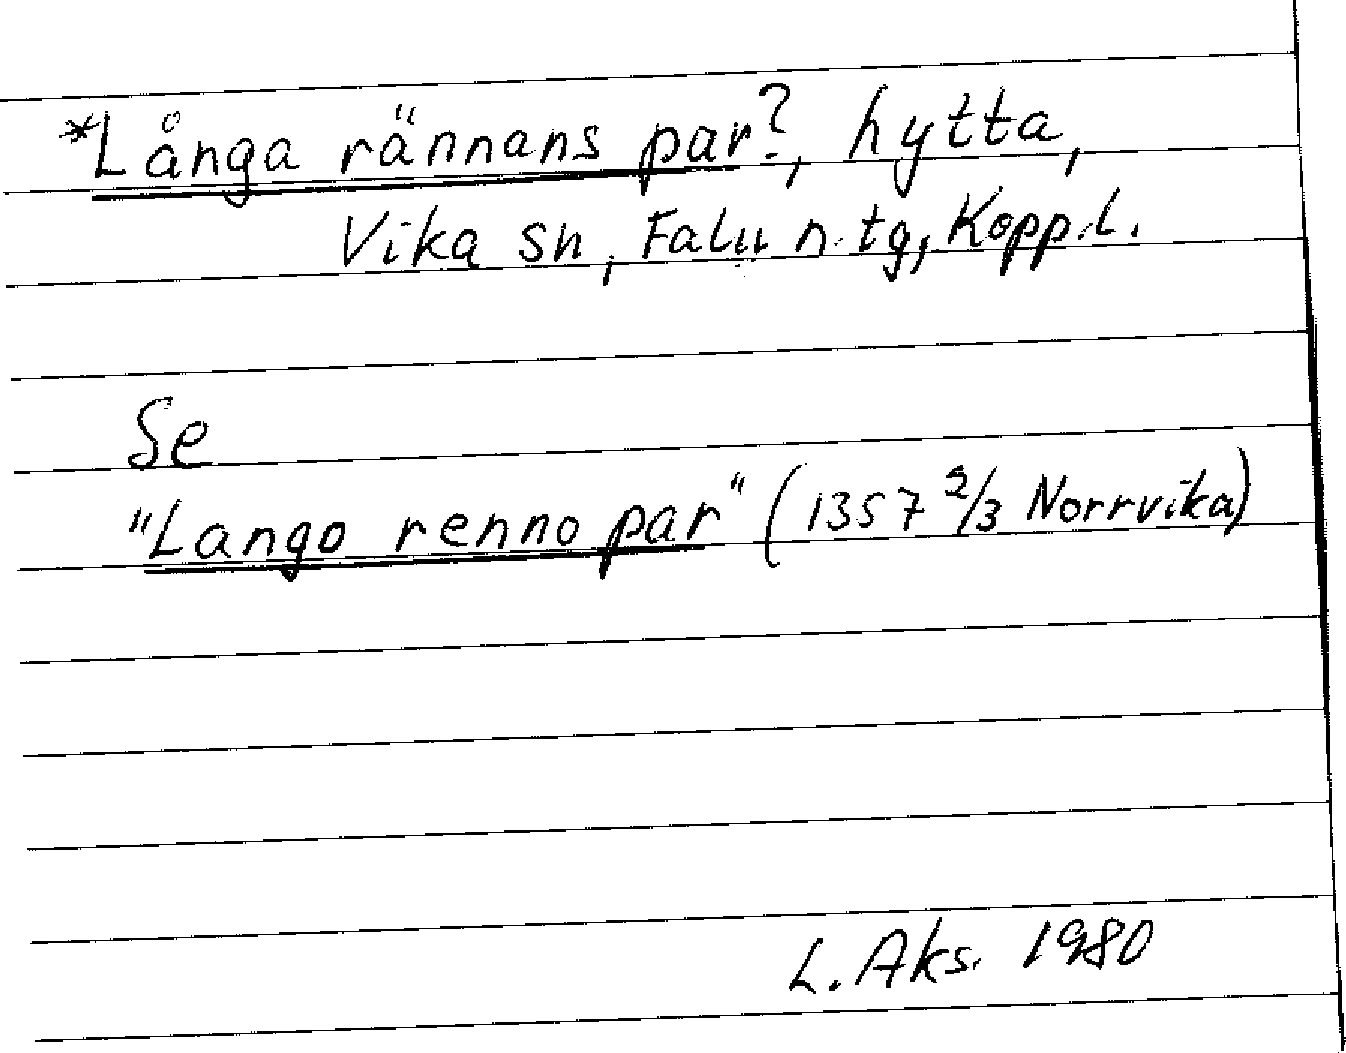 *Långa rännans par?, hytta,
Vika sn, Falu n. tg, Kopp.l.
Se
"Lango renno par" (1357 2/3 Norrvika)
L. Aks. 1980